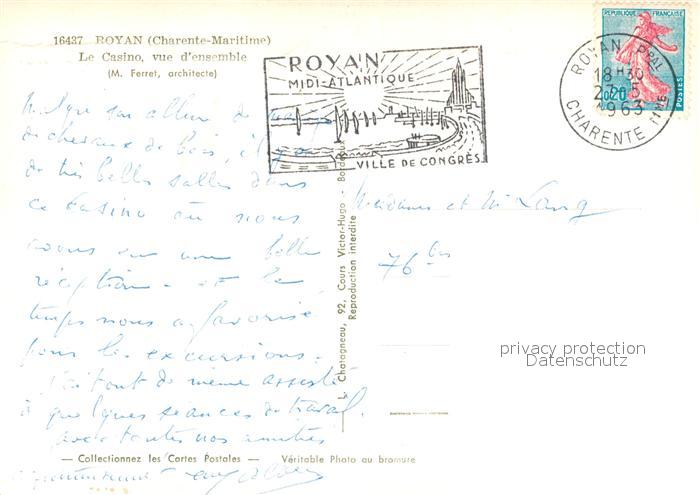 16437 ROYAN (Charente-Maritime)
Le Casino, vue d'ensemble
(M. Ferret, architecte)
ROYAN
MIDI-ATLANTIQUE
VILLE DE CONGRÈS
REPUBLIQUE FRANÇAISE
0,20
POSTES
ROYAN PPAL
18H30
1963
CHARENTE Mme
Malgré son allure de manège
de chevaux de bois, il y a
de très belles salles dans
ce Casino où nous
avons eu une belle
réception - et le
temps nous a favorisé
pour les excursions.
J'ai tout de même assisté
à quelques séances de travail.
avec toutes nos amitiés
Madame et Mr Lang
76 bis
L. Chatagneau, 92, Cours Victor-Hugo - Bordeaux
Reproduction interdite
privacy protection
Datenschutz
— Collectionnez les Cartes Postales — Véritable Photo au bromure